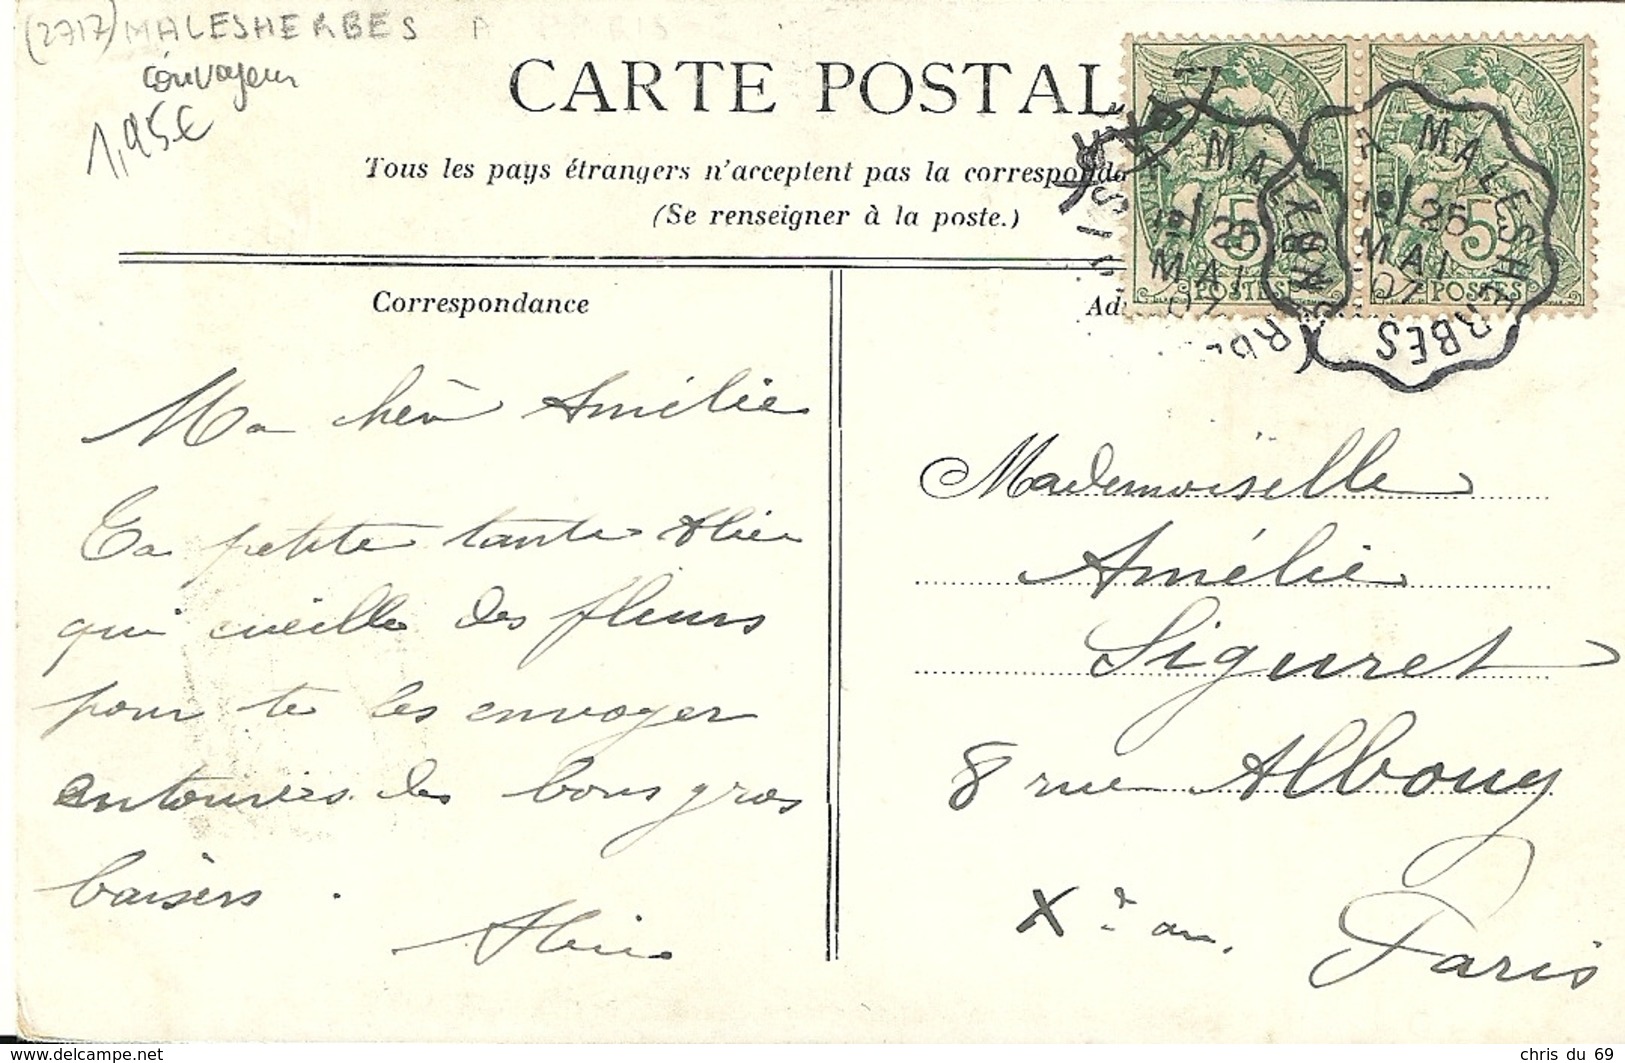 (2717) MALESHERBES A PARIS
convoyeur
1,95€
CARTE POSTAL
Tous les pays étrangers n'acceptent pas la correspondan
(Se renseigner à la poste.)
Correspondance
Ad
MALESHERBES
1º/ 25
MAI
07
MALESHERBES
1º/ 25
MAI
07
5
POSTES
5
POSTES
Ma chère Amélie
Ta petite tante Aline
qui cueille des fleurs
pour te les envoyer
entourées de bons gros
baisers.
Aline
Mademoiselle
Amélie
Siguret
8 rue Albouy
Xe arr.
Paris
chris du 69
www.delcampe.net